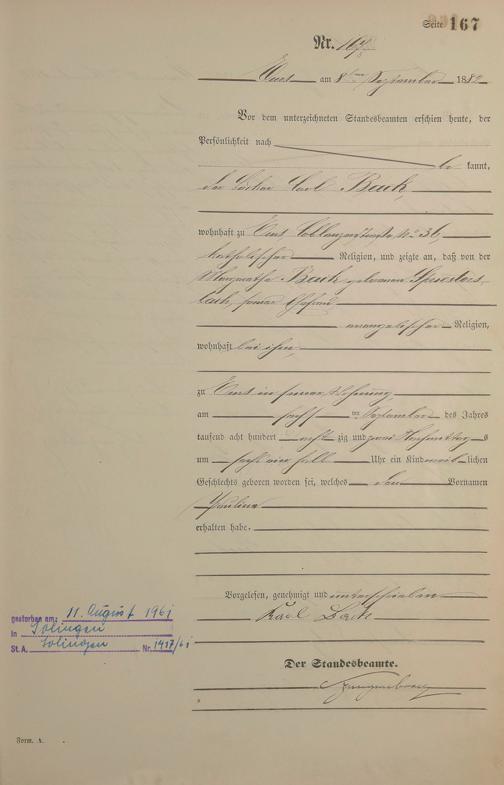 Seite 167
Nr. 167
Ems am 8ten September 1882
Vor dem unterzeichneten Standesbeamten erschien heute, der
Persönlichkeit nach
be kannt,
der Carl Bach,
wohnhaft zu Ems Coblenzerstraße No 36,
katholischer Religion, und zeigte an, daß von der
Bach, geborenen
bach, seiner Ehefrau
evangelischer Religion,
wohnhaft bei ihm,
zu Ems in seiner Wohnung,
am sechsten September des Jahres
tausend acht hundert acht zig und zwei s
um Uhr ein Kind weib lichen
Geschlechts geboren worden sei, welches den Vornamen
Paulina
erhalten habe.
Vorgelesen, genehmigt und unterschrieben
Karl Bach
Der Standesbeamte.
gestorben am: 11. August 1961
in Solingen
St. A. Solingen Nr. 1417/61
Form. A.